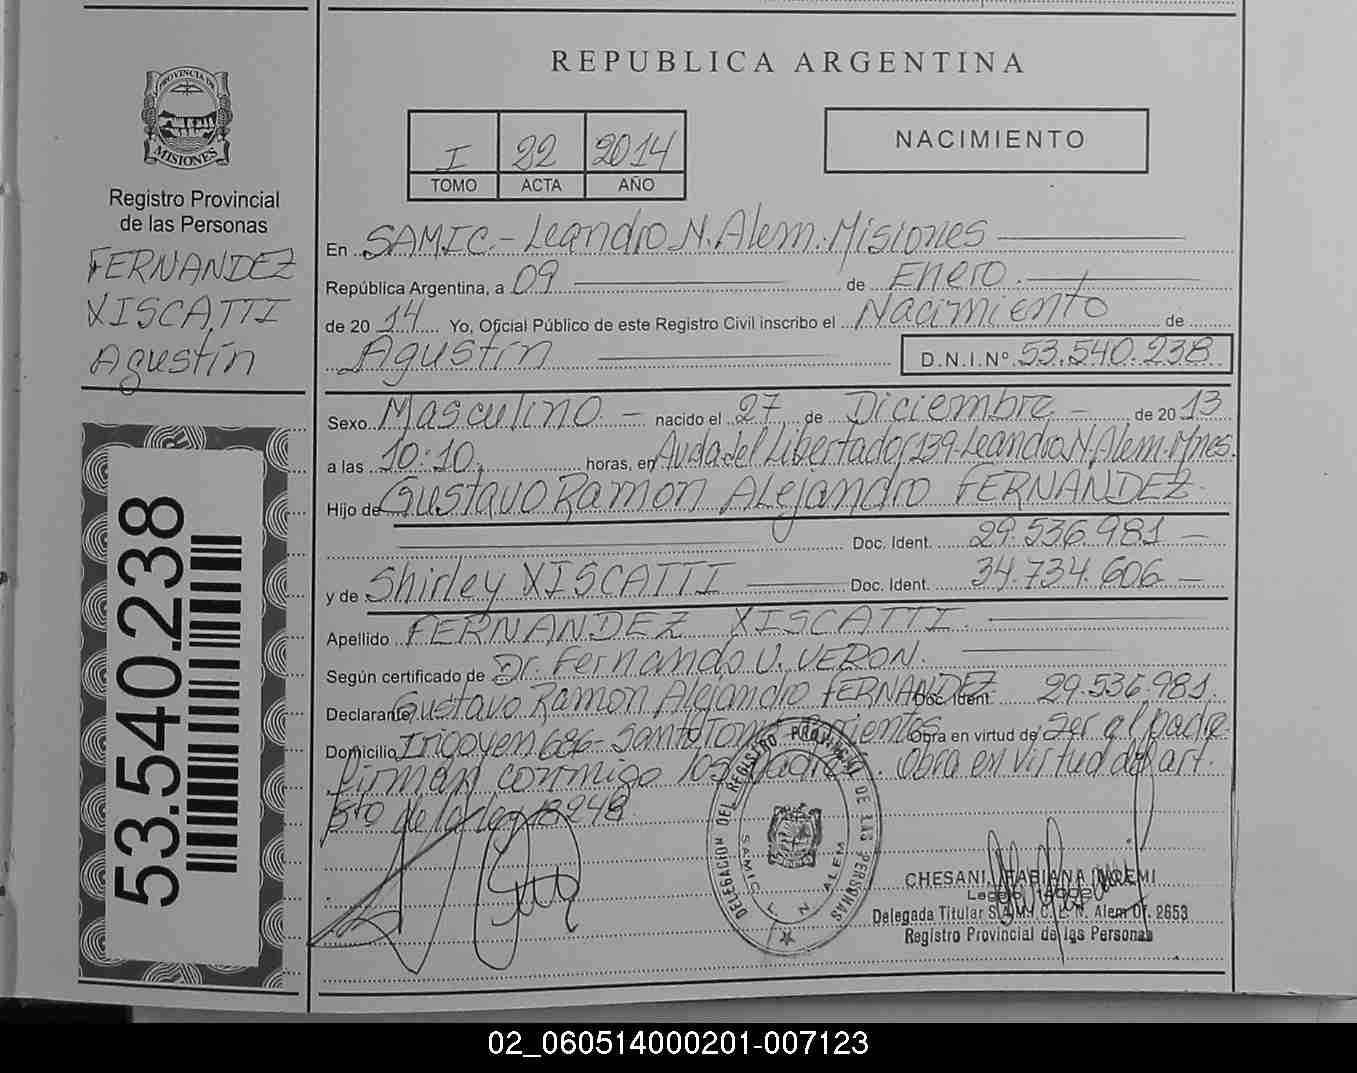 REPUBLICA ARGENTINA
PROVINCIA DE
MISIONES
Registro Provincial
de las Personas
FERNANDEZ
XISCATTI
Agustín
53.540.238
I 22 2014
TOMO ACTA AÑO
NACIMIENTO
En SAMIC.- Leandro N. Alem. Misiones
República Argentina, a 09 de Enero.
de 2014 Yo, Oficial Público de este Registro Civil inscribo el Nacimiento de
Agustín D.N.I.Nº 53.540.238
Sexo Masculino - nacido el 27 de Diciembre - de 2013
a las 10:10. horas, en Avda del Libertador 139- Leandro N. Alem. Mnes.
Hijo de Gustavo Ramon Alejandro FERNANDEZ
Doc. Ident. 29.536.981 -
y de Shirley XISCATTI Doc. Ident. 34.734.606 -
Apellido FERNANDEZ XISCATTI.
Según certificado de Dr. Fernando U. VERON.
Declarante Gustavo Ramon Alejandro FERNANDEZ Doc. Ident. 29.536.981.
Domicilio Irigoyen 686- Santo Tomé Corrientes Obra en virtud de Ser el padre
firman conmigo los padres. Obra en virtud del art.
5to de la ley 18248.
DELEGACION DEL REGISTRO PROVINCIAL DE LAS PERSONAS
SAMIC L N ALEM
CHESANI, FABIANA NOEMI
Legajo
Delegada Titular S.A.M.I.C. L. N. Alem Of. 2653
Registro Provincial de las Personas
02_060514000201-007123